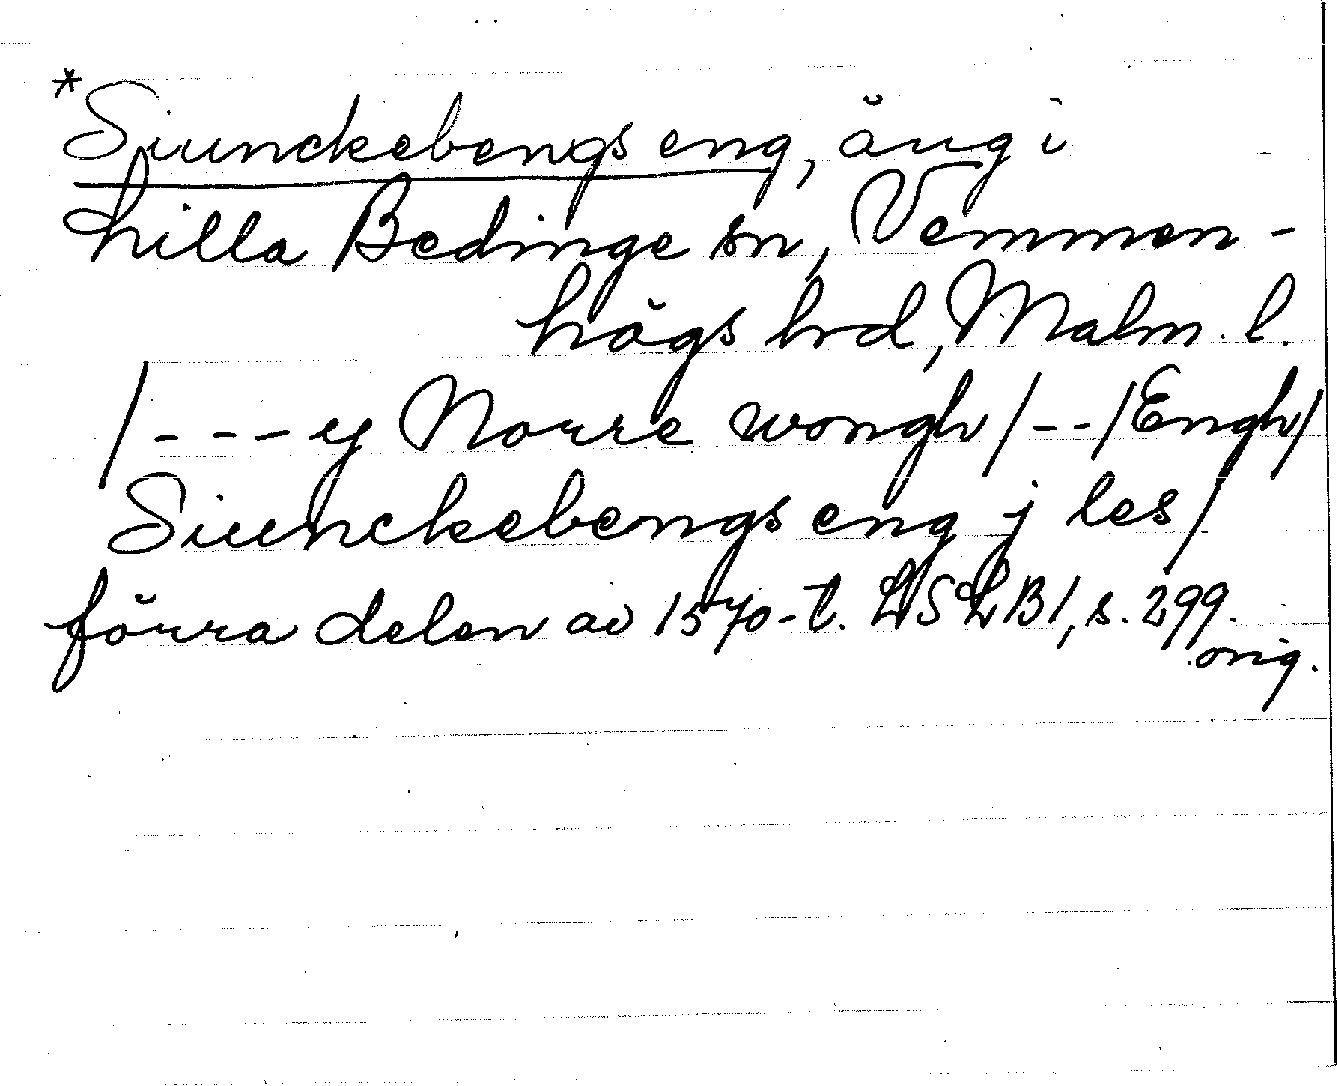 *Siunckebengs eng, äng i
Lilla Bedinge sn, Vemmen-
högs hrd, Malm. l.
/---y Norre wongh/--/Engh/
Siunckebengs eng j les/
förra delen av 1570-t. LSLB1, s. 299.
orig.